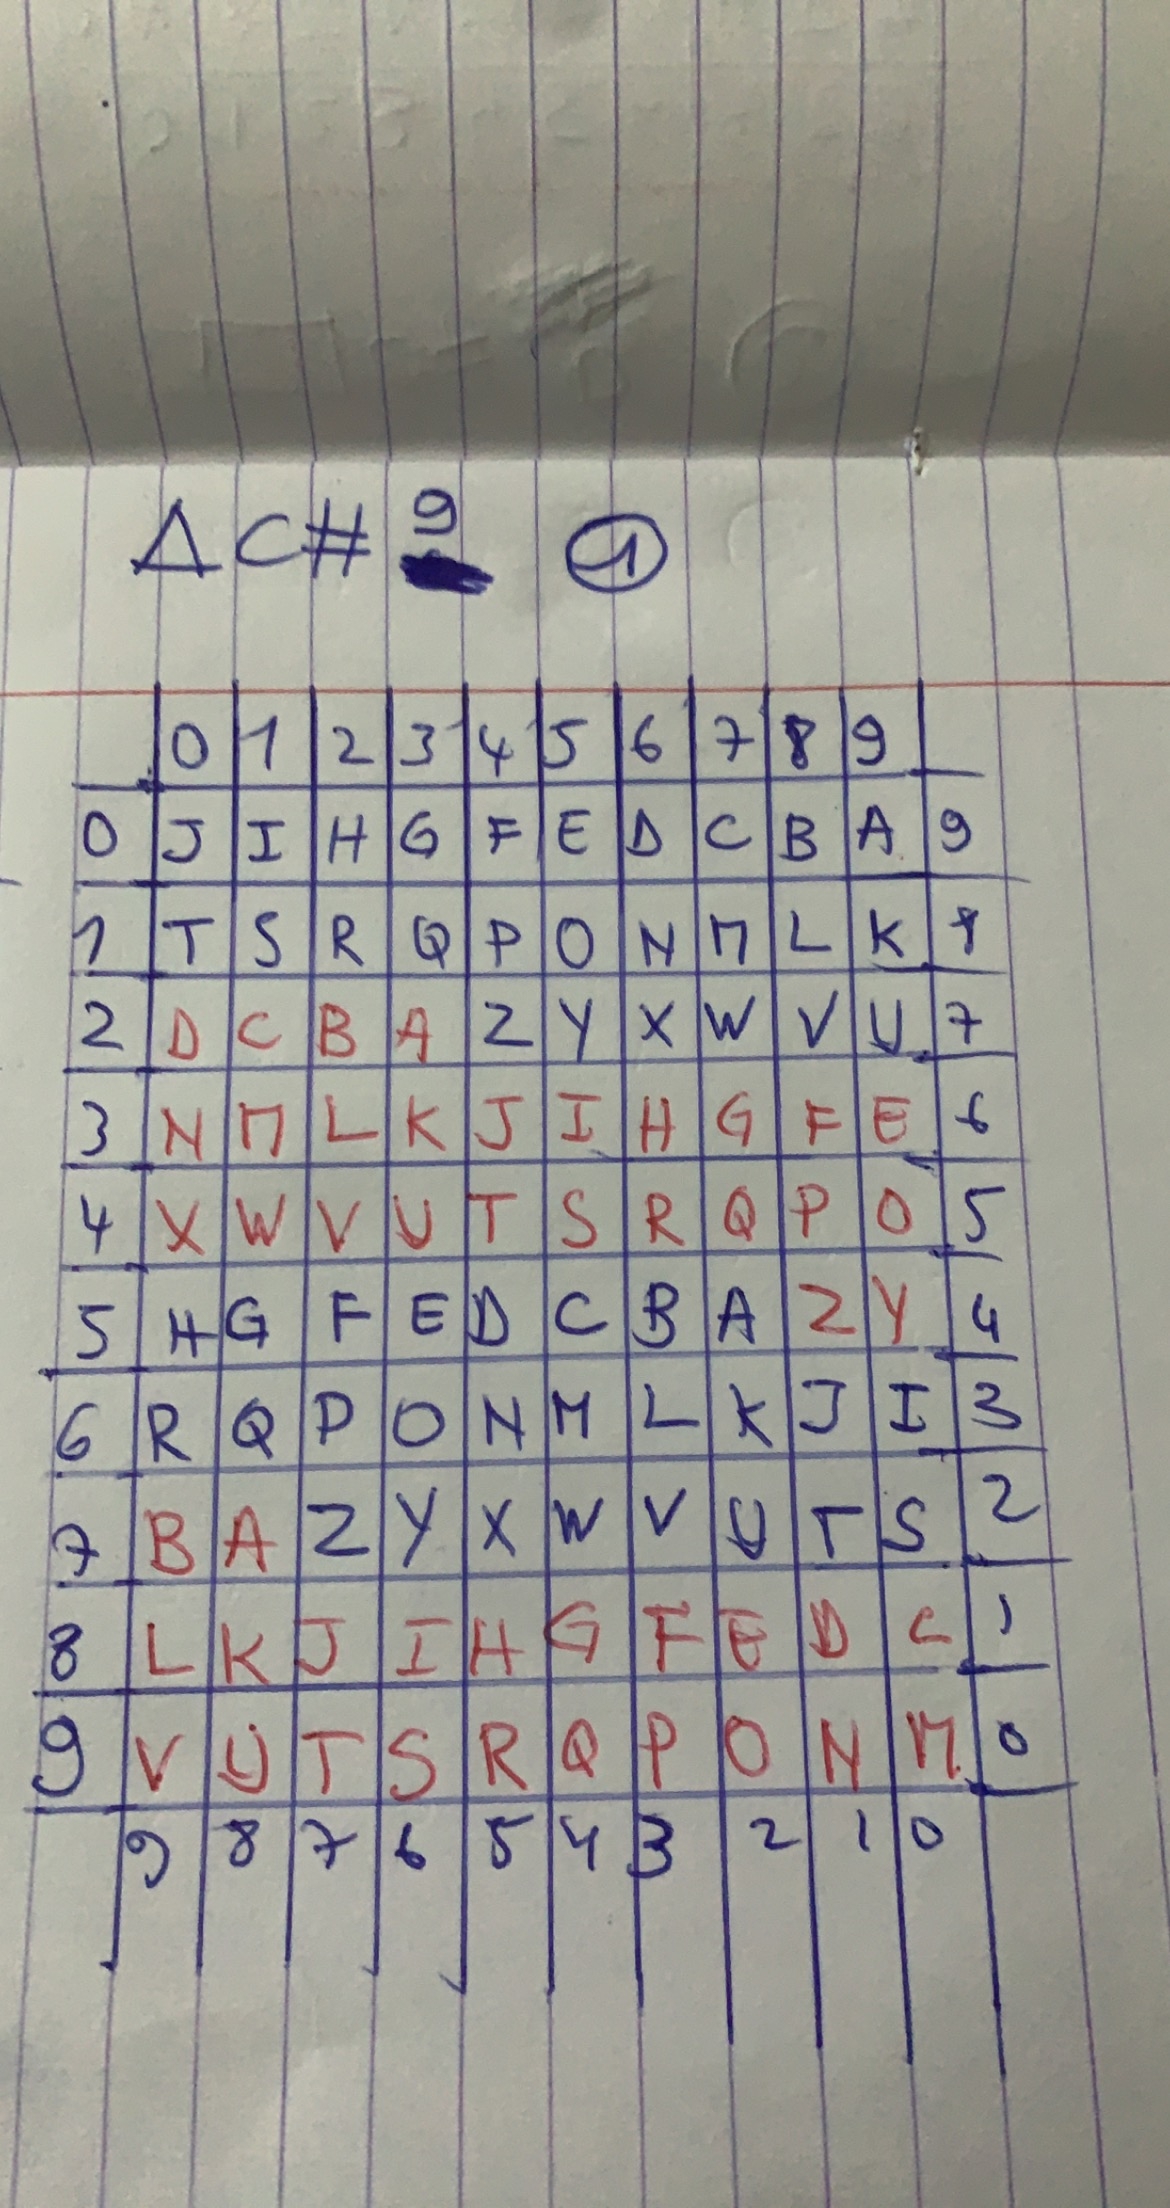 Δ C# 9 ①
0 1 2 3 4 5 6 7 8 9
0 J I H G F E D C B A 9
1 T S R Q P O N M L K 8
2 D C B A Z Y X W V U 7
3 N M L K J I H G F E 6
4 X W V U T S R Q P O 5
5 H G F E D C B A Z Y 4
6 R Q P O N M L K J I 3
7 B A Z Y X W V U T S 2
8 L K J I H G F E D C 1
9 V U T S R Q P O N M 0
9 8 7 6 5 4 3 2 1 0